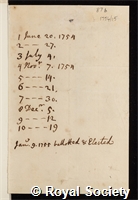 1 June 20. 1754
2 --- 27.
3 July 4.
4 Nov.r 7. 1754
5 --- 14.
6 --- 21.
7 --- 30.
8 Dec.r 5.
9 --- 12
10 --- 19
Jan. 9. 1755 balloted & Elected
© Royal Society